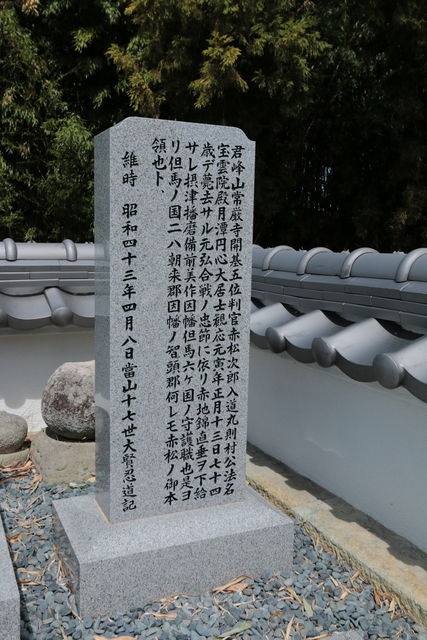 君峰山常厳寺開基五位判官赤松次郎入道九則村公法名
宝雲院殿月潭円心大居士観応元寅年正月十三日七十四
歳デ薨去サル元弘合戦ノ忠節に依リ赤地錦直垂ヲ下給
サレ摂津播磨備前美作因幡但馬六ヶ国ノ守護職也是ヨ
リ但馬ノ国二八朝来郡因幡ノ智頭郡何レモ赤松ノ御本
領也ト、
維時 昭和四十三年四月八日當山十七世大賢忍道記